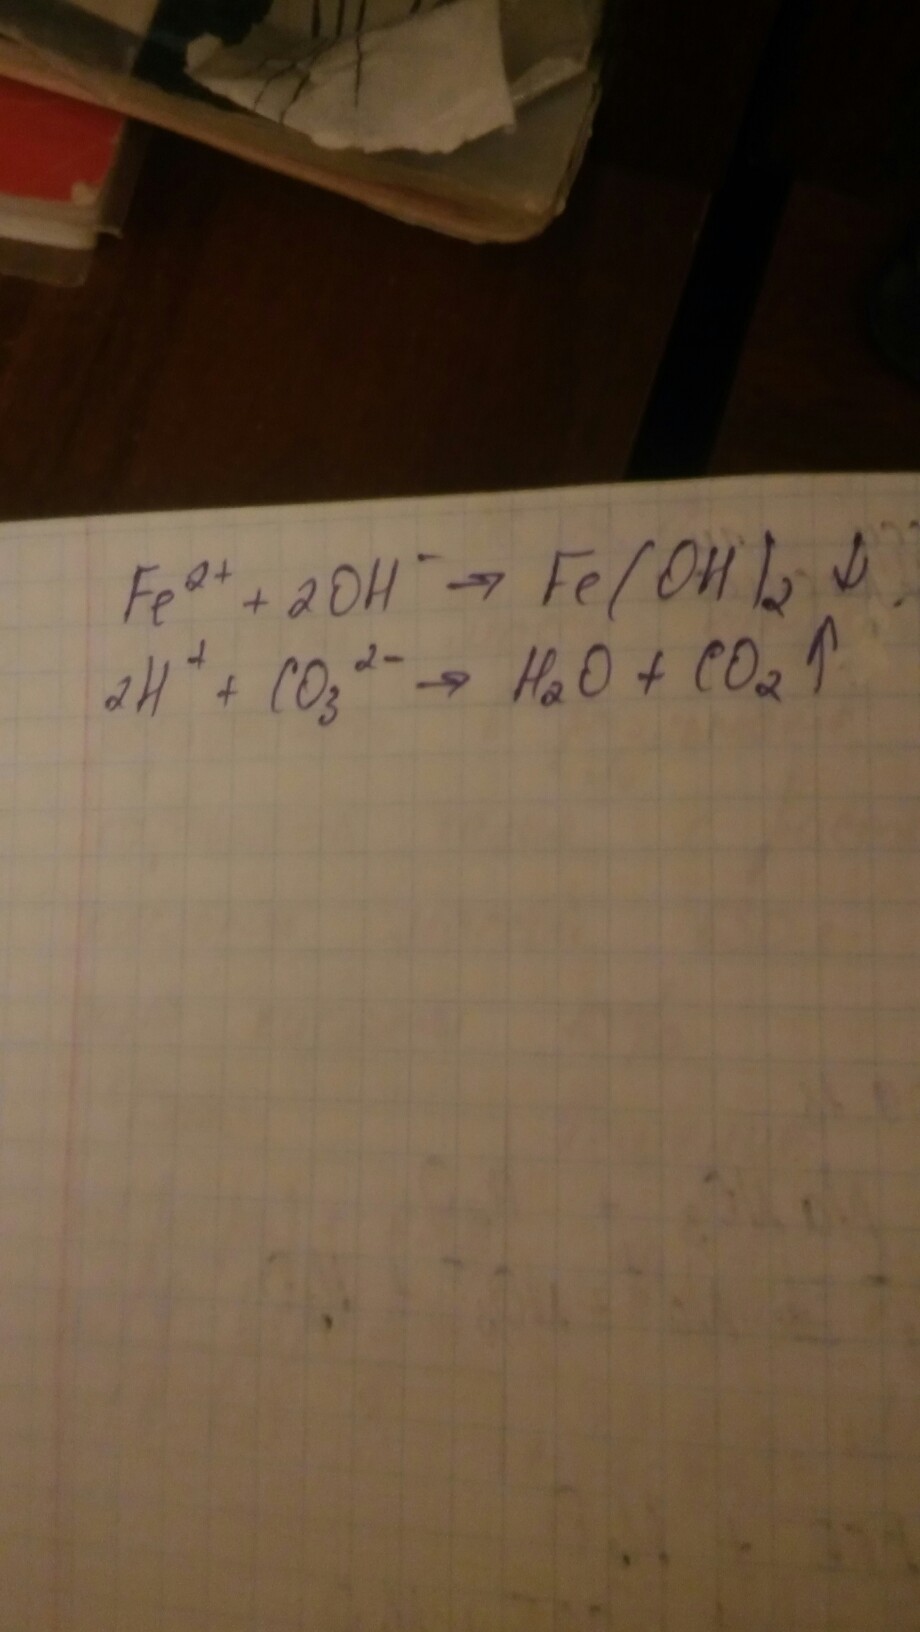 Fe²⁺ + 2OH⁻ → Fe(OH)₂ ↓
2H⁺ + CO₃²⁻ → H₂O + CO₂ ↑